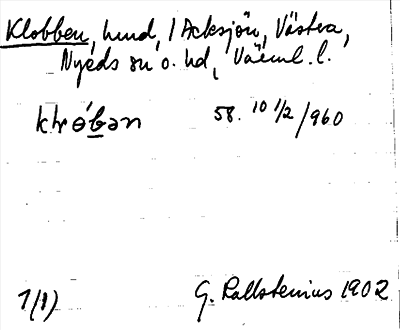 Klobben, hmd, i Acksjön, Västra,
Nyeds sn o. hd, Värml. l.
klǿbən 58. 10 1/2 / 960
1(8) G. Kallstenius 1902